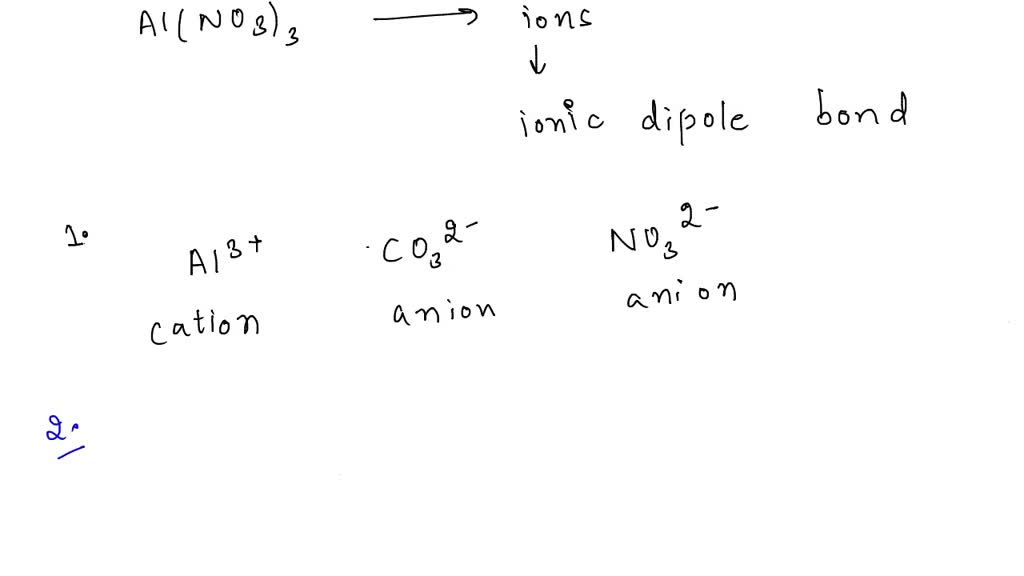 Al(NO3)3 → ions
↓
ionic dipole bond
1. Al3+ CO3 2- NO3 2-
cation anion anion
2.